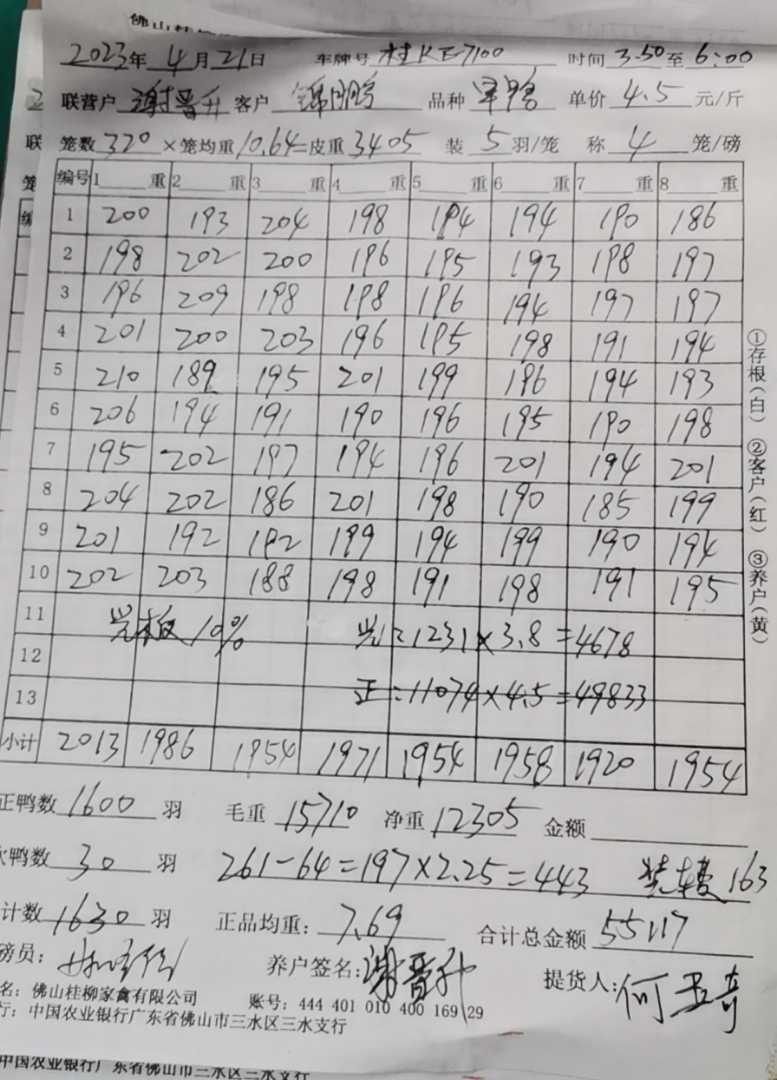 2023年 4月 21日 车牌号 桂KE7100 时间 3.50 至 6:00
联营户 谢晋升 客户 锦鹏 品种 单价 4.5 元/斤
笼数 320 ×笼均重 10.64=皮重 3405 装 5 羽/笼 称 4 笼/磅
编号 1 重 2 重 3 重 4 重 5 重 6 重 7 重 8 重
1 200 193 204 198 194 194 190 186
2 198 202 200 196 195 193 198 197
3 196 209 198 198 196 194 197 197
4 201 200 203 196 195 198 191 194
5 210 189 195 201 199 196 194 193
6 206 194 191 190 196 195 190 198
7 195 202 197 194 196 201 194 201
8 204 202 186 201 198 190 185 199
9 201 192 192 199 194 199 190 194
10 202 203 188 198 191 198 191 195
11 光板 10% 光:1231×3.8=4678
12
13 正:11074×4.5=49833
小计 2013 1986 1954 1971 1954 1958 1920 1954
正鸭数 1600 羽 毛重 15710 净重 12305 金额
次鸭数 30 羽 261-64=197×2.25=443 装车费 163
计数 1630 羽 正品均重: 7.69 合计总金额 55117
磅员: 养户签名: 谢晋升 提货人: 何
名: 佛山桂柳家禽有限公司 账号: 444 401 010 400 169 29
行: 中国农业银行广东省佛山市三水区三水支行
①存根(白) ②客户(红) ③养户(黄)
中国农业银行广东省佛山市三水区三水支行